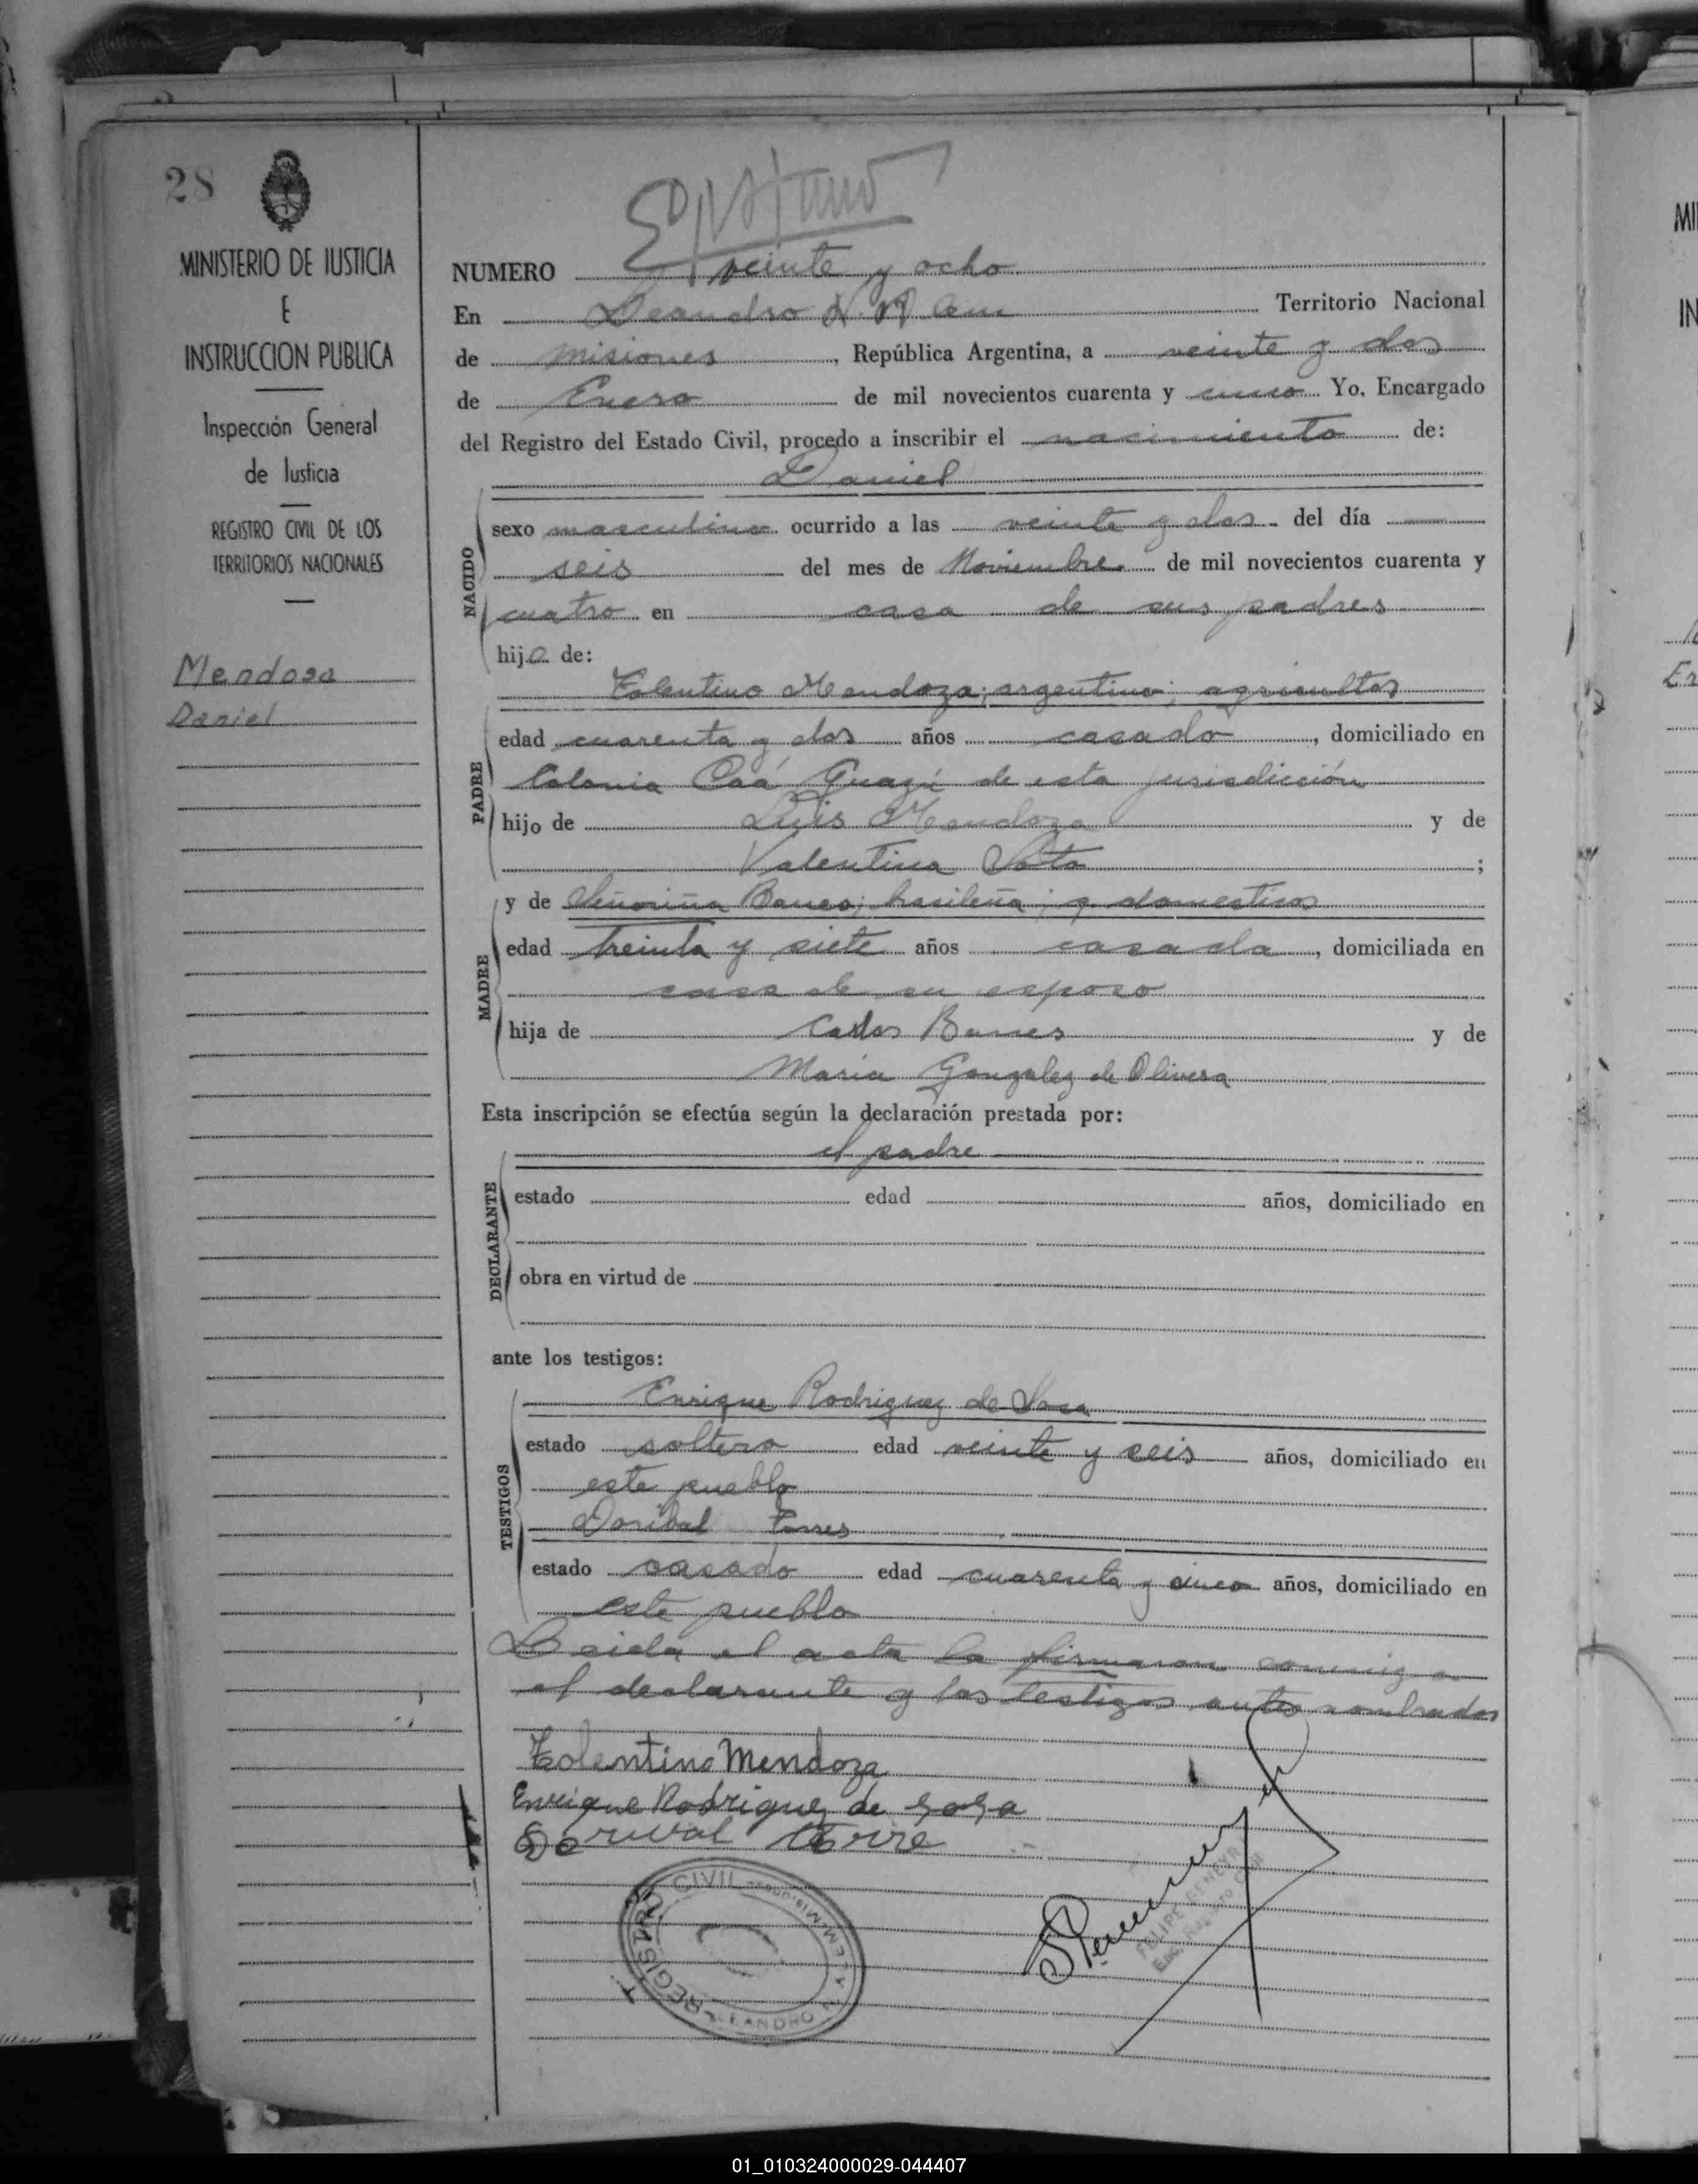 28
MINISTERIO DE JUSTICIA
E
INSTRUCCION PUBLICA
Inspección General
de Justicia
REGISTRO CIVIL DE LOS
TERRITORIOS NACIONALES
Mendosa
Daniel
NUMERO veinte y ocho
En Leandro N. Alem Territorio Nacional
de Misiones, República Argentina, a veinte y dos
de Enero de mil novecientos cuarenta y cinco Yo, Encargado
del Registro del Estado Civil, procedo a inscribir el nacimiento de:
Daniel
NACIDO
sexo masculino ocurrido a las veinte y dos del día
seis del mes de Noviembre de mil novecientos cuarenta y
cuatro en casa de sus padres
hijo de:
Tolentino Mendoza; argentino; agricultor
PADRE
edad cuarenta y dos años casado, domiciliado en
Colonia Caá Guazú de esta jurisdicción
hijo de Luis Mendoza y de
Valentina Soto;
y de Señoriña brasileña; q. domesticos
MADRE
edad treinta y siete años casada, domiciliada en
casa de su esposo
hija de Carlos y de
Maria Gonzalez de Olivera
Esta inscripción se efectúa según la declaración prestada por:
el padre
DECLARANTE
estado edad años, domiciliado en
obra en virtud de
ante los testigos:
Enrique Rodriguez de Sosa
TESTIGOS
estado soltero edad veinte y seis años, domiciliado en
este pueblo
Doribal Torres
estado casado edad cuarenta y cinco años, domiciliado en
este pueblo
Leida el acta la firmaron conmigo
el declarante y los testigos antes nombrados
Tolentino Mendoza
Enrique Rodriguez de Sosa
Dorival Torre
REGISTRO CIVIL
LEANDRO N. ALEM
FELIPE
Enc. Registro Civil
01_010324000029-044407